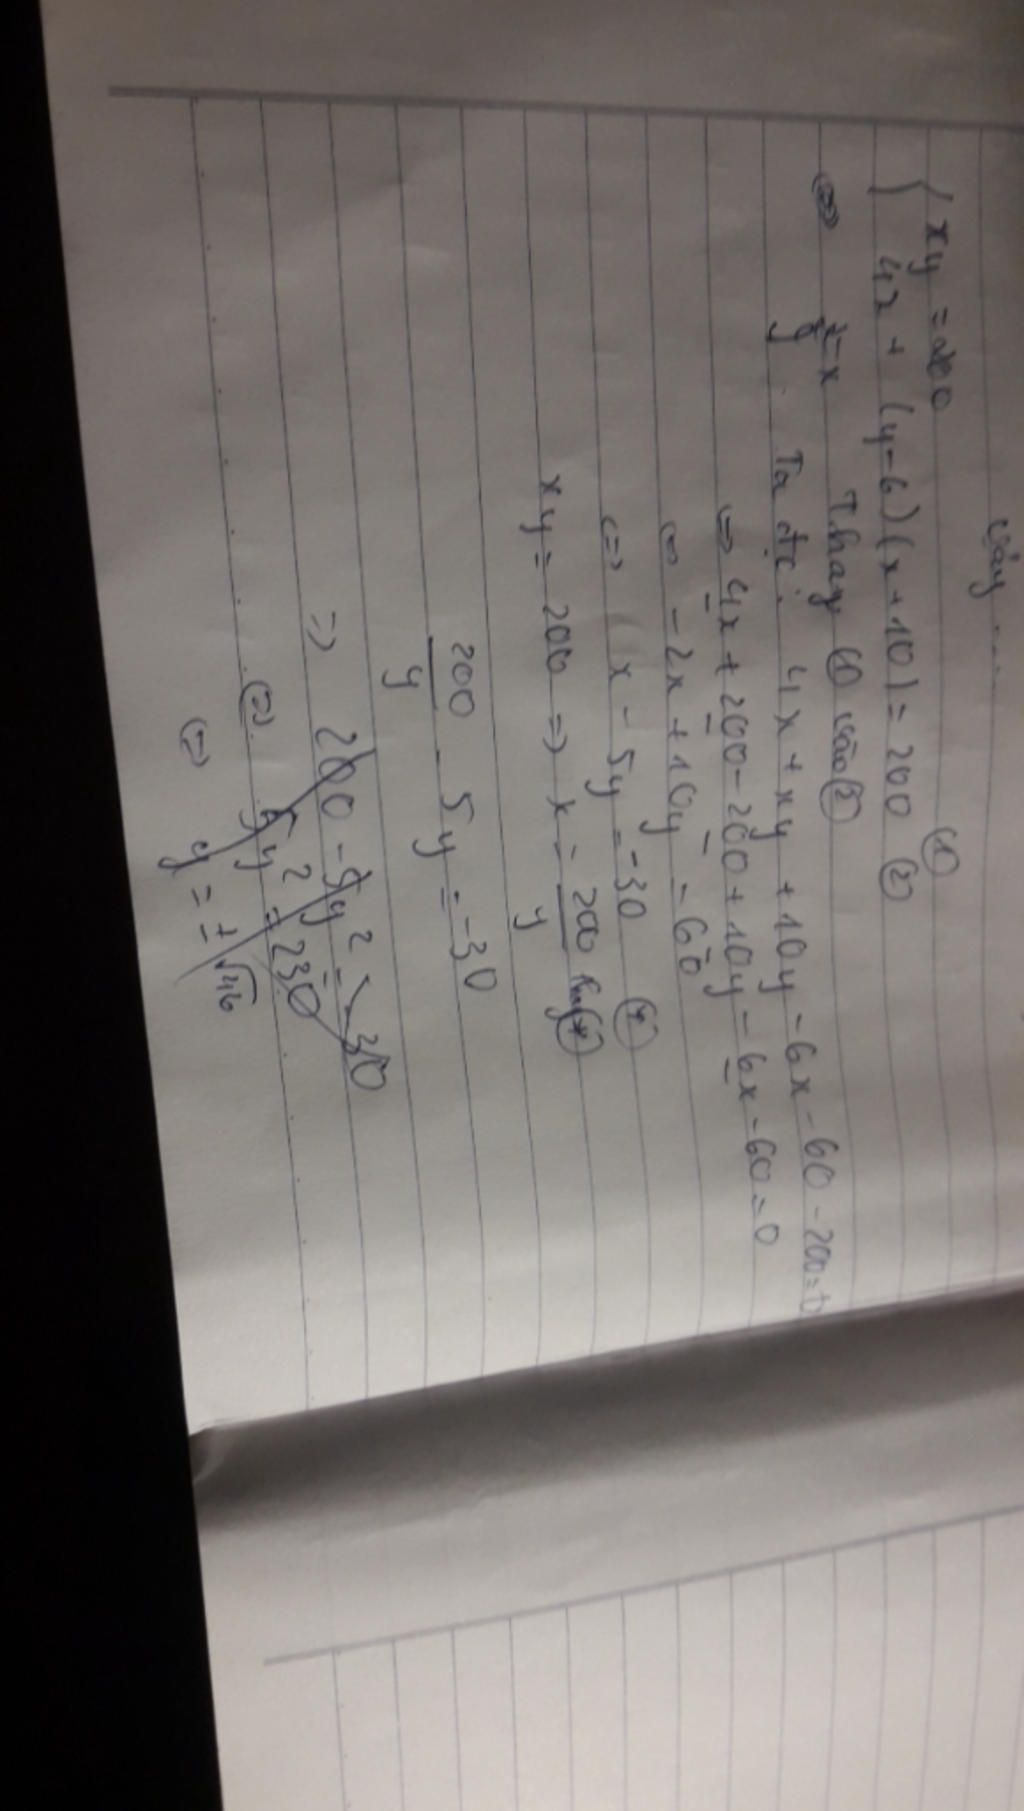 Vậy ....
{ xy = 200 (1)
4x + (y-6)(x+10) = 200 (2)
<=> Thay (1) vào (2)
Ta đc: 4x + xy + 10y - 6x - 60 - 200 = 0
=> 4x + 200 - 200 + 10y - 6x - 60 = 0
<=> -2x + 10y = 60
<=> x - 5y = -30 (*)
xy = 200 => x = 200/y thay (*)
200/y - 5y = -30
=> 200 - 5y² = -30
<=> 5y² = 230
<=> y = ± √46